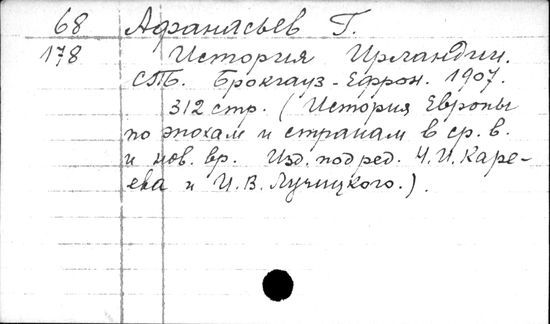 68 Афанасьев Г.
178 История Ирландии.
СПБ. Брокгауз-Ефрон. 1907.
312 стр. (История Европы
по эпохам и странам в ср. в.
и нов. вр. Изд. под ред. Н. И. Каре-
ева и И. В. Лучицкого.).